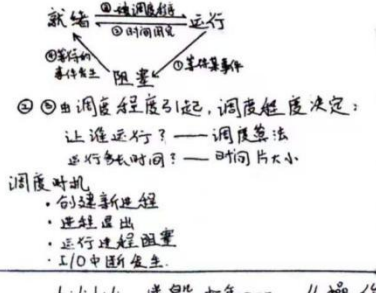 ②被调度程序
就绪 运行
③时间用完
④等待的
事件发生
①等待某事件
阻塞
②③由调度程度引起,调度程度决定:
让谁运行?——调度算法
运行多长时间?——时间片大小
调度时机
·创建新进程
·进程退出
·运行进程阻塞
·I/O中断发生